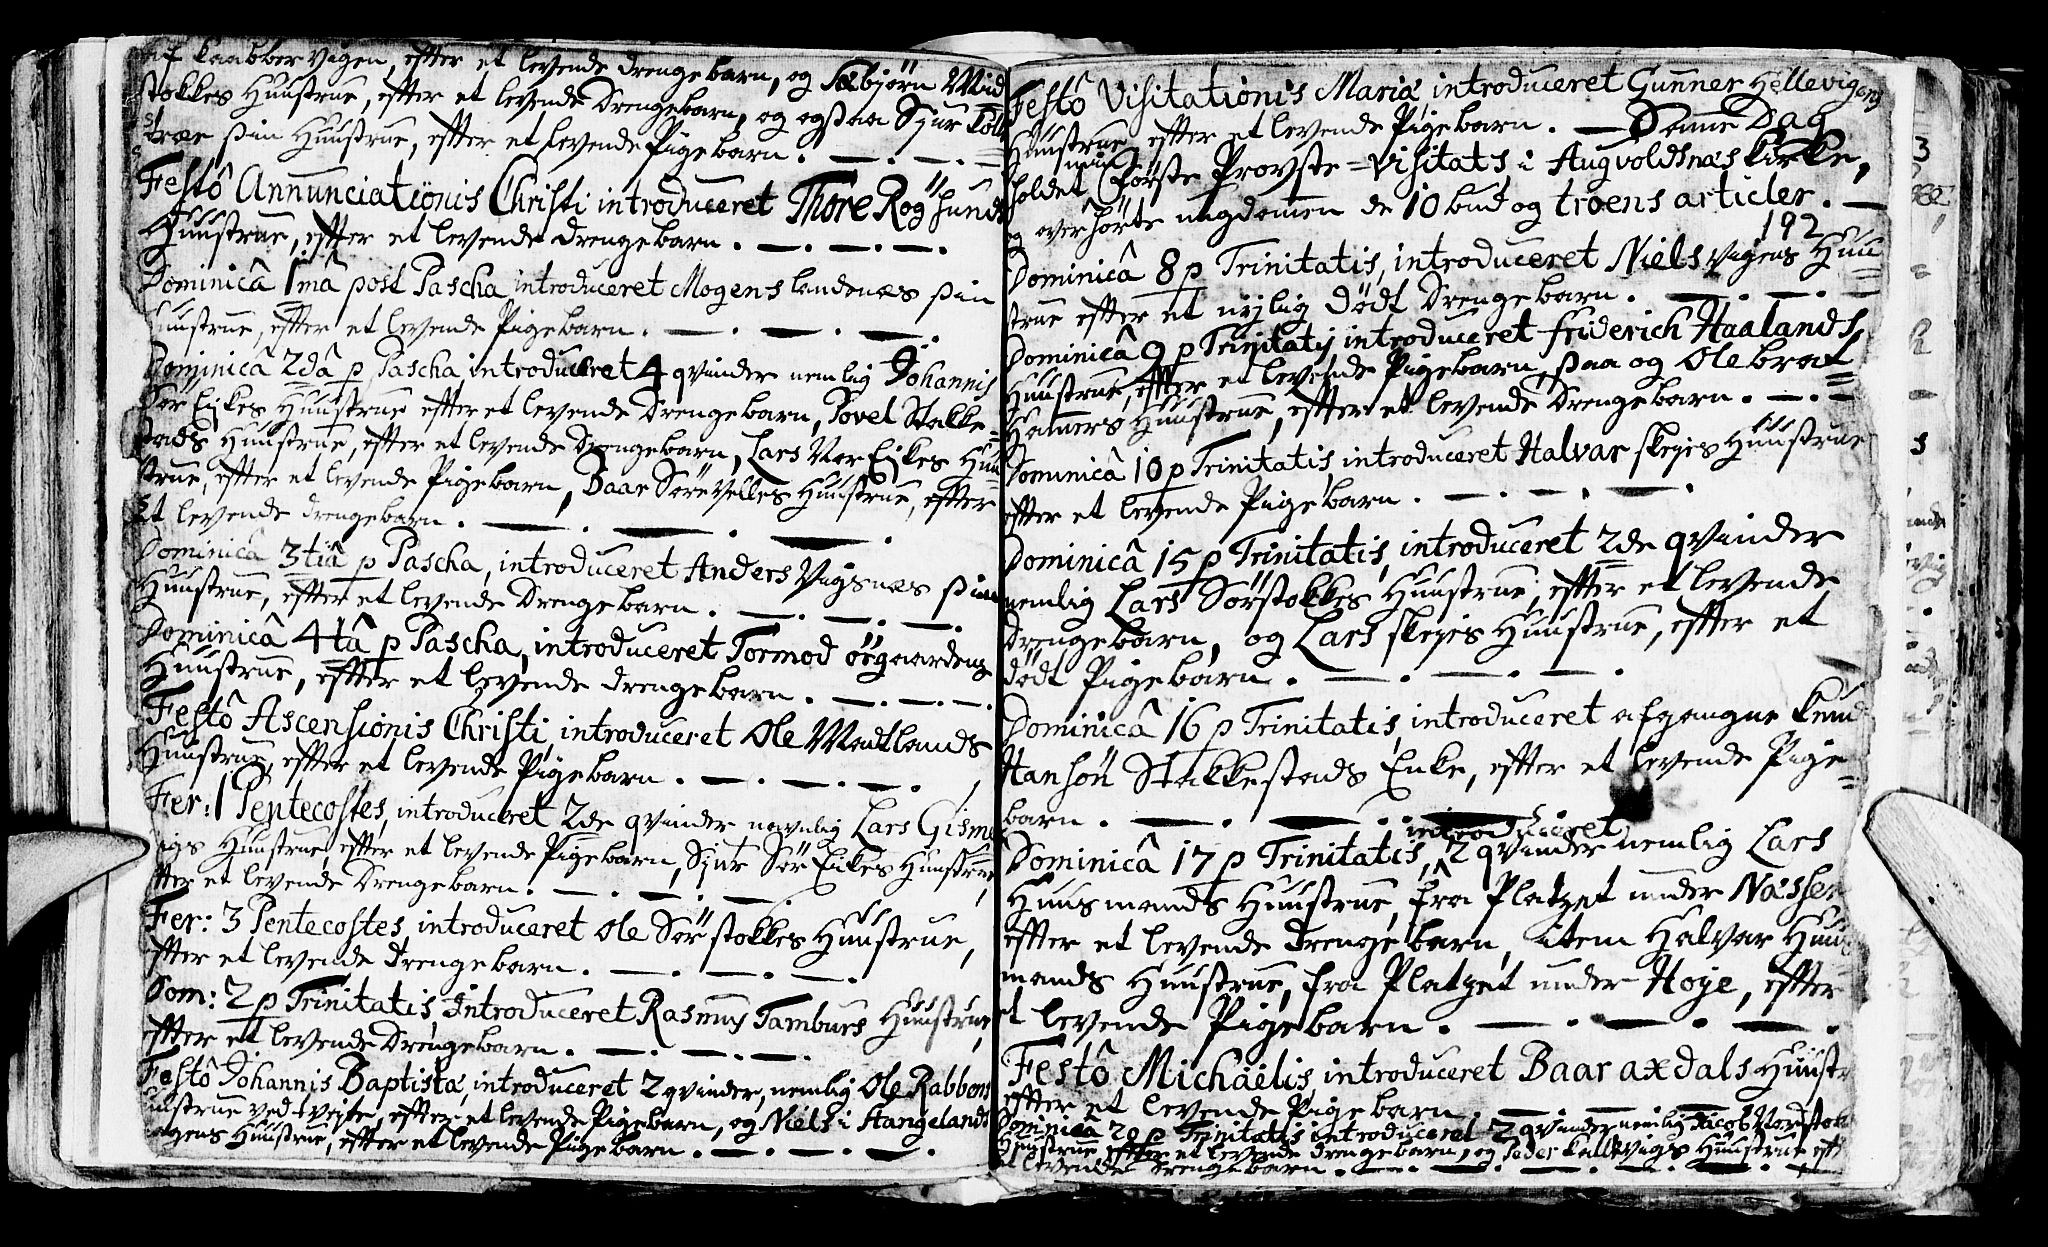 af Kaabbervigen, effter et levende drengebarn, og Tarbjørn Mid
stokkes Huustrue, effter et levende Drengebarn, og ogsaa Sjur
træe sin Huustrue, effter et levende Pigebarn.
Festô Annunciationis Christi introduceret Thore Røgsunds
Huustrue, effter et levende drengebarn.
Dominicâ 1mâ post Pascha introduceret Mogens landenæs sin
Huustrue, effter et levende Pigebarn.
Dominicâ 2dâ p Pascha, introduceret 4 qvinder nemlig Johannis
Sør Eikes Huustrue effter et levende Drengebarn, Povel Stakke-
stads Huustrue, effter et levende Drengebarn, Lars Nor Eikes Huu-
strue, effter et levende Pigebarn, Baar Sørevelles Huustrue, effter
et levende drengebarn.
Dominicâ 3tiâ p Pascha, introduceret Anders Vigsnæs sin
Huustrue, effter et levende Drengebarn.
Dominicâ 4tâ p Pascha, introduceret Tormod øegaardens
Huustrue, effter et levende drengebarn.
Festô Ascensionis Christi, introduceret Ole Madlands
Huustrue, effter et levende Pigebarn.
Fer: 1 Pentecostes, introduceret 2de qvinder navnlig Lars Gisme
igs Huustrue, effter et levende Pigebarn, Sjur Sør Eikes Huustrue
effter et levende Drengebarn.
Fer: 3 Pentecostes, introduceret Ole Sørstokkes Huustrue,
effter et levende Drengebarn.
Dom: 2 p Trinitatis Introduceret Rasmus Tamburs Huustrue,
effter et levende Drengebarn.
Festô Johannis Baptistæ, introduceret 2 qvinder, nemlig Ole Rabbens
Huustrue ved Vejte, effter et levende Pigebarn, og Niels i Stangelands
Huustrue, effter et levende Pigebarn.
Festô Visitationis Mariæ introduceret Gunner Hellevigens
Huustrue, effter et levende Pigebarn. Samme Dag
holdet min Første Provste=visitats i Augvoldsnæs kirke,
og overhørte ungdomen de 10 bud og troens articler.
192
Dominicâ 8 p Trinitatis, introduceret Niels Vigens Huu=
strue effter et nylig dødt Drengebarn.
Dominicâ 9 p Trinitatis introduceret friderich Haalands
Huustrue, effter et levende Pigebarn, saa og Ole brat=
Hamers Huustrue, effter et levende Drengebarn.
Dominicâ 10 p Trinitatis, introduceret Halvar skejes Huustrue
effter et levende Pigebarn.
Dominicâ 15 p Trinitatis, introduceret 2de qvinder
nemlig Lars Sørstokkes Huustrue, effter et levende
Drengebarn, og Lars skejes Huustrue, effter et
dødt Pigebarn.
Dominicâ 16 p Trinitatis, introduceret afgangne Knud
Hansøn Stakkestads Enke, effter et levende Pige=
barn.
introduceret
Dominicâ 17 p Trinitatis, 2 qvinder nemlig Lars
Huusmands Huustrue, fra Platzet under Næssen
effter et levende Drengebarn, item Halvar Huus
mands Huustrue, fra Platzet under Hoje, effter
et levende Pigebarn.
Festô Michäelis, introduceret Baar axdals Huustr
effter et levende Pigebarn.
Dominicâ 20 p Trinitatis introduceret 2 qvinder nemlig Jacob Nordstok
Huustrue, effter et levende drengebarn, og Peder Kallevigs Huustrue eff
et levende drengebarn.